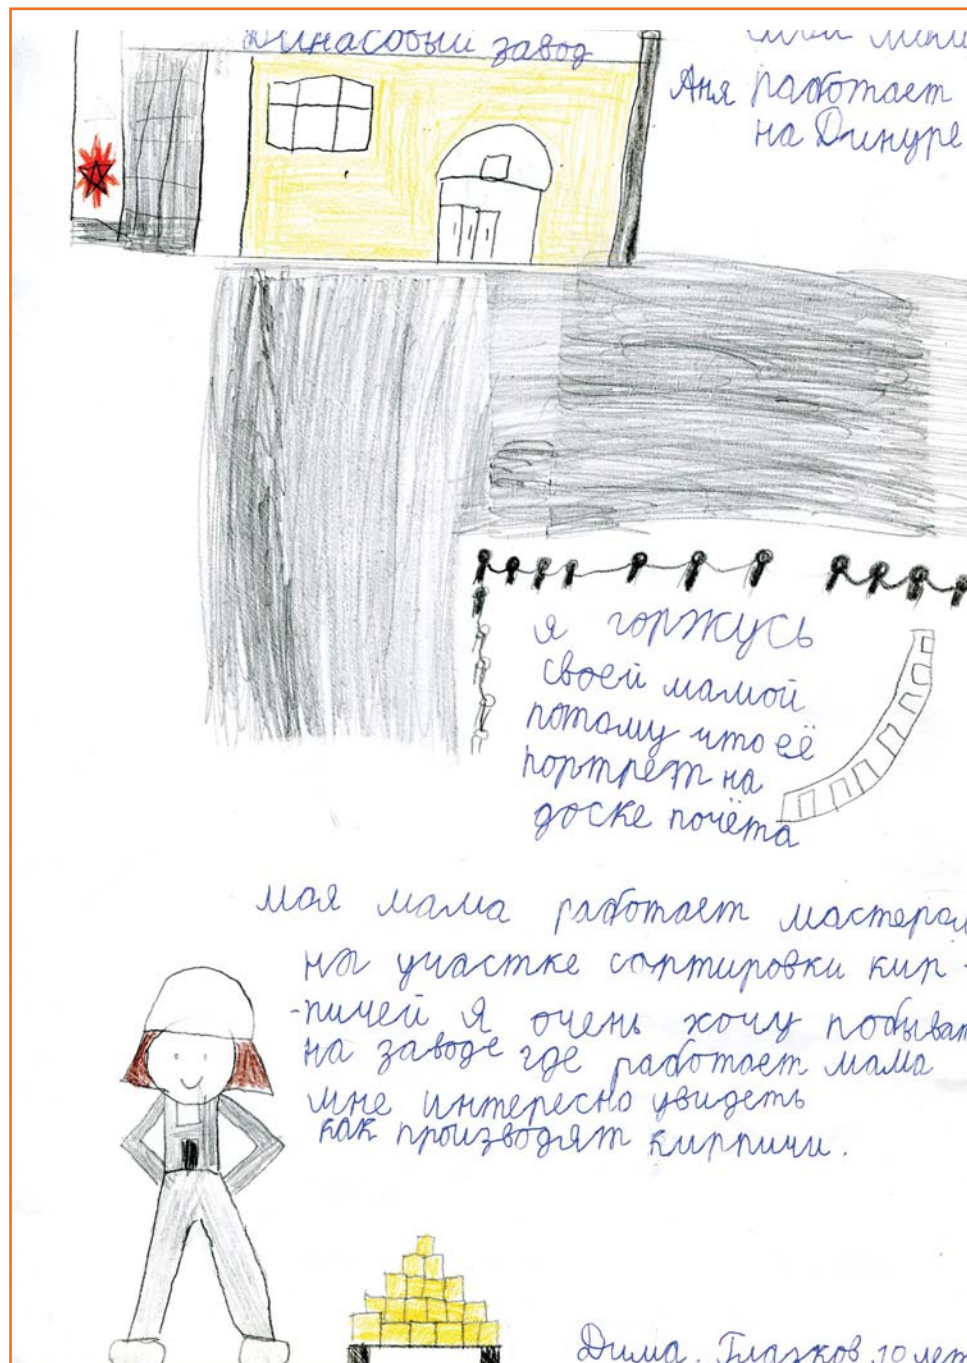 Динасовый завод
Аня работает
на Динуре
я горжусь
своей мамой
потому что её
портрет на
доске почёта
моя мама работает мастером
на участке сортировки кир-
-пичей я очень хочу побыват
на заводе где работает мама
мне интересно увидеть
как производят кирпичи.
Дима. Глазков 10 лет